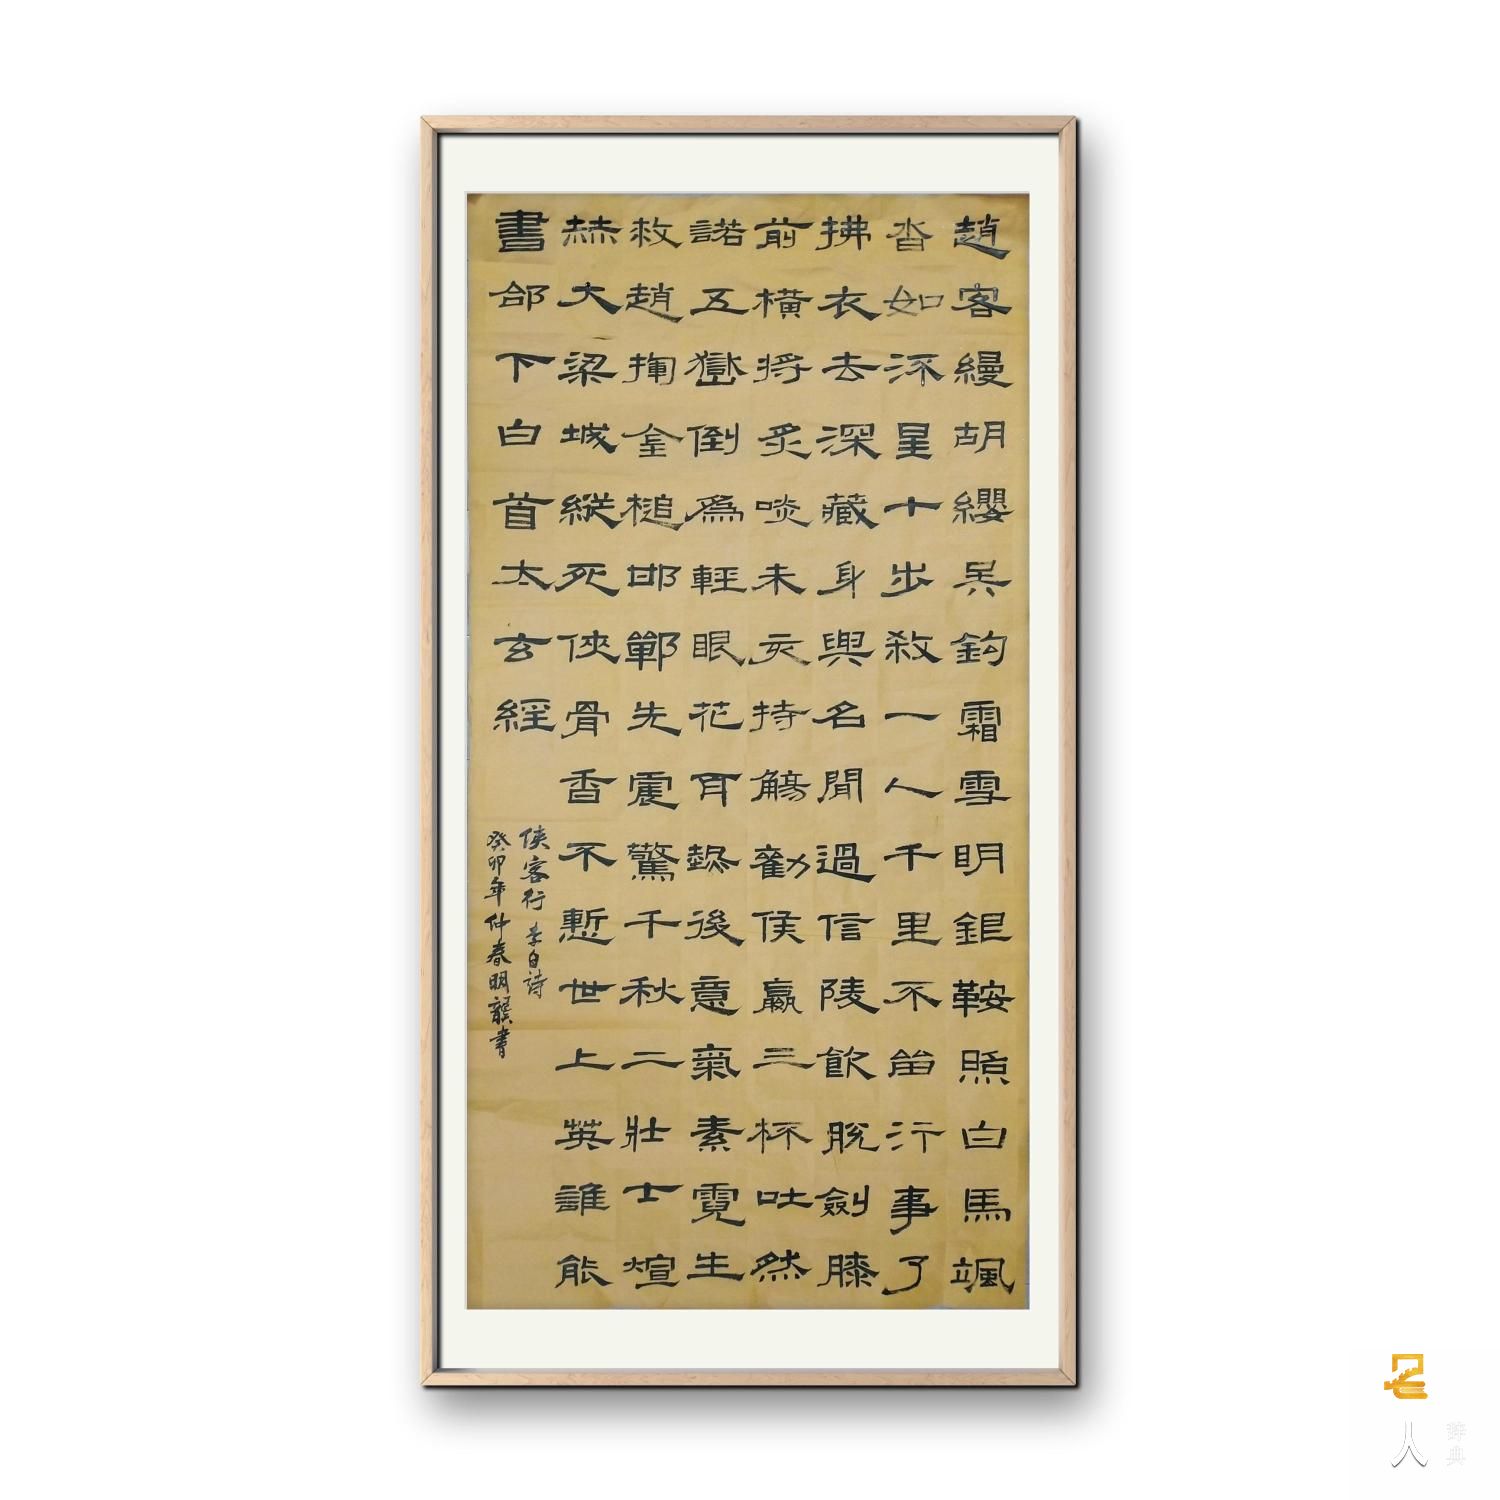 趙客縵胡纓吳鈎霜雪明銀鞍照白馬颯
沓如流星十步殺一人千里不留行事了
拂衣去深藏身與名聞過信陵飲脫劍膝
前橫將炙啖朱亥持觴勸侯嬴三杯吐然
諾五嶽倒為輕眼花耳熱後意氣素霓生
救趙揮金槌邯鄲先震驚千秋二壯士煊
赫大梁城縱死俠骨香不慙世上英誰能
書郃下白首太玄經
俠客行 李白詩
癸卯年仲春明龔書
人
辞典